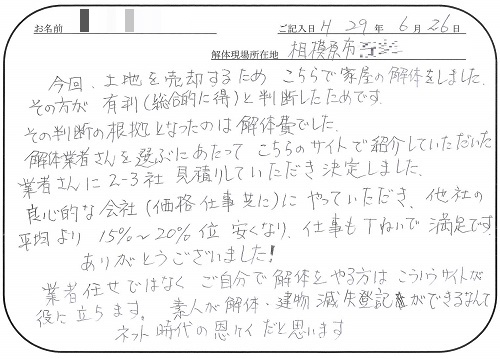 お名前 ご記入日 H 29年 6月 26日
解体現場所在地 相模原市
今回、土地を売却するため こちらで家屋の解体をしました。
その方が 有利(総合的に得)と判断したためです。
その判断の根拠となったのは解体費でした。
解体業者さんを選ぶにあたって こちらのサイトで紹介していただいた
業者さんに 2-3社 見積りしていただき 決定しました。
良心的な会社(価格 仕事 共に)に やっていただき、他社の
平均より 15%~20%位 安くなり、仕事も丁ねいで 満足です。
ありがとうございました!
業者任せではなく ご自分で解体をやる方は こういうサイトが
役に立ちます。 素人が解体・建物滅失登記ができるなんて
ネット時代の恩ケイだと思います